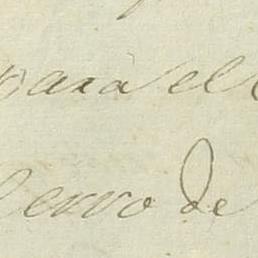 para el
Cerro de